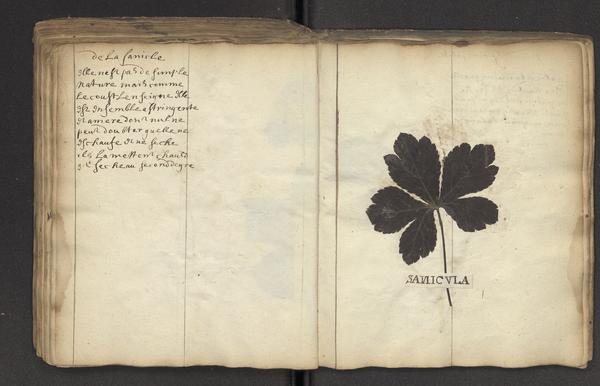 de La sanicle
elle nest pas de simple
nature mais comme
Le coust Lenseigne elle
est ensemble astringente
et amere dont nul ne
peut doubter quelle ne
eschaufe et ne seche
ils La mettent chaude
et seche au second degre
SANICVLA